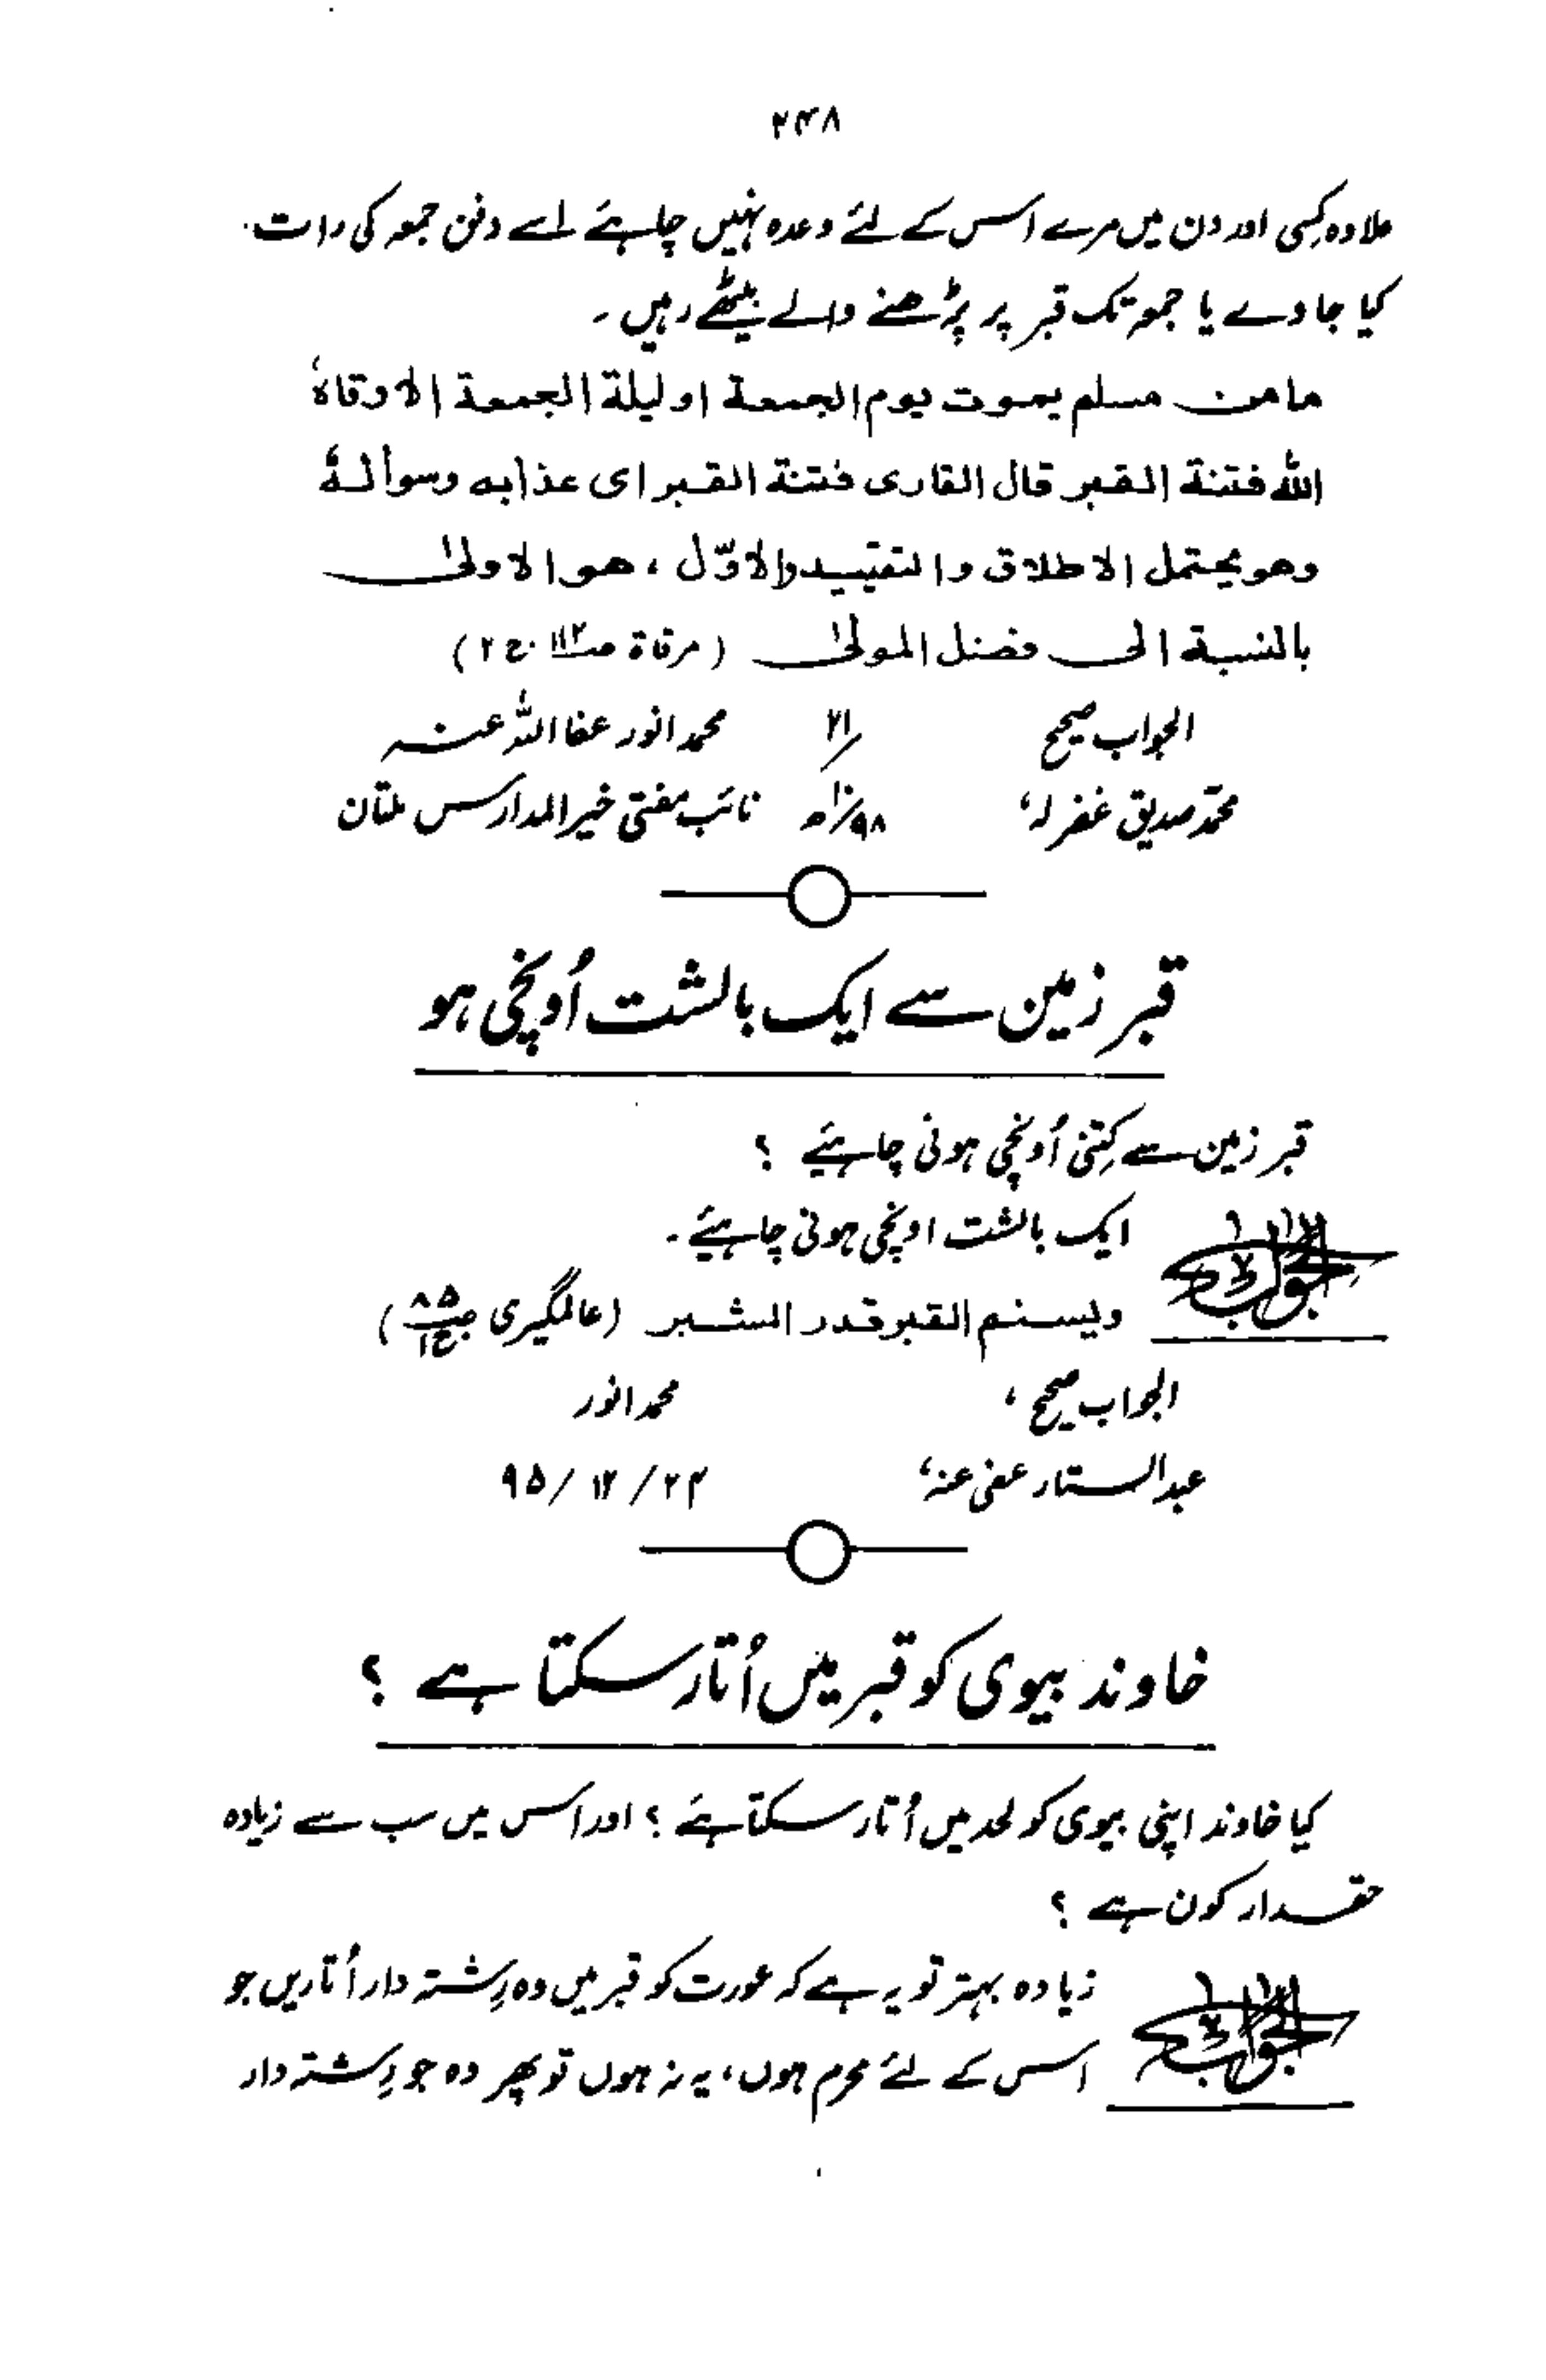 ۲۳۸
علاوہ کسی اور دن میں مرے اس کے لئے وعدہ نہیں چاہئے اسے دفن جمعہ کی رات
کیا جاوے یا جمعہ تک قبر پر پڑھنے والے بیٹھے رہیں ۔
مامن مسلم يموت يوم الجمعة او ليلة الجمعة الا وقاہ
اللہ فتنة القبر قال القاری فتنة القبر ای عذابہ وسوالہ
وھو یحتمل الاطلاق والتقیید والاوّل ، ھو الاولیٰ
بالنسبة الی فضل المولیٰ (مرقاة ج ۲)
الجواب صحیح ۲۱/ محمد انور عفا اللہ عنہ
محمّد صدیق غفرلہ، ۱۰/۹۸ھ نائب مفتی خیر المدارس ملتان
قبر زمین سے ایک بالشت اُونچی ہو
قبر زمین سے کِتنی اُونچی ہونی چاہیئے ؟
الجواب ایک بالشت اونچی ہونی چاہیئے ۔
ویسنم القبر قدر الشبر (عالمگیری ص۸۵ ج۱)
الجواب صحیح ، محمد انور
عبد الستار عفی عنہ، ۲۴/ ۱۲/ ۹۵
خاوند بیوی کو قبر میں اُتار سکتا ہے ؟
کیا خاوند اپنی بیوی کو لحد میں اُتار سکتا ہئے ؟ اور اس میں سب سے زیادہ
حقدار کون ہے ؟
الجواب زیادہ بہتر تو یہ ہے کہ عورت کو قبر میں وہ رِشتہ دار اُتاریں جو
اس کے لئے محرم ہوں، یہ نہ ہوں تو پھر وہ جو رِشتہ دار